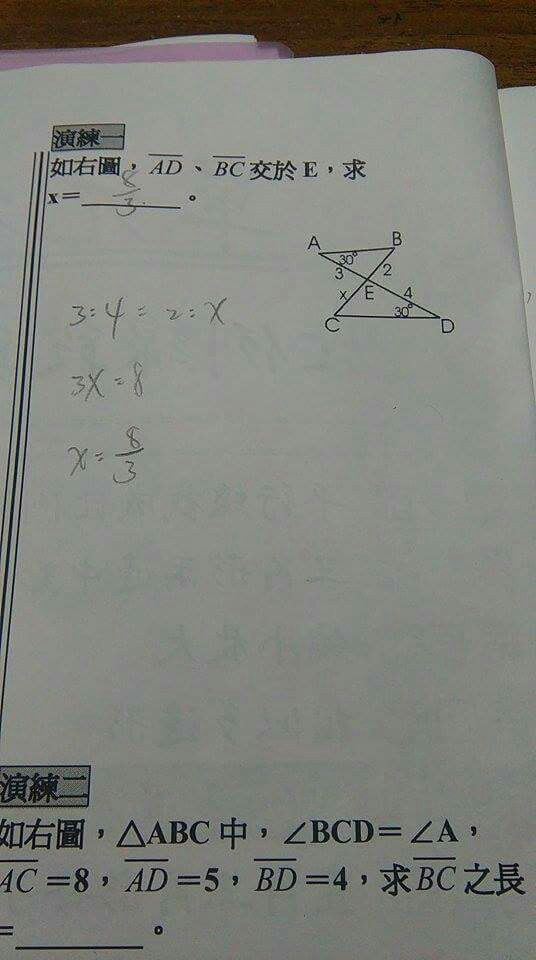 演練一
如右圖，AD、BC交於E，求
x＝ 8/3 。
A B
30°
3 2
x E 4
30°
C D
3:4=2:x
3x=8
x=8/3
演練二
如右圖，△ABC中，∠BCD＝∠A，
AC＝8，AD＝5，BD＝4，求BC之長
=______。